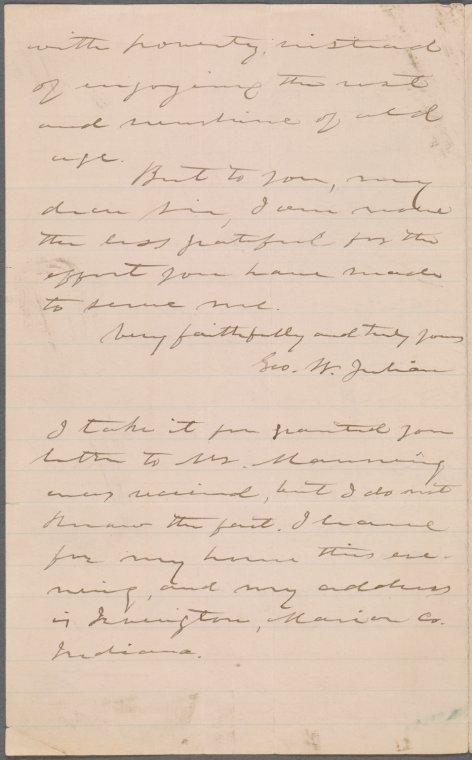 with poverty, instead
of enjoying the rest
and sunshine of old
age.
But to you, my
dear sir, I am none
the less grateful for the
effort you have made
to serve me.
Very faithfully and truly yours
Geo. W. Julian
I take it for granted your
letter to Mr. Manning
was received, but I do not
know the fact. I leave
for my home this eve-
ning, and my address
is Irvington, Marion Co.
Indiana.